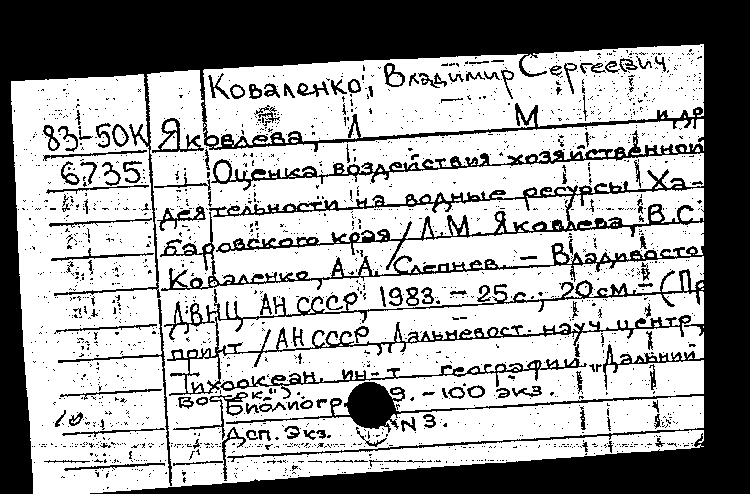 Коваленко, Владимир Сергеевич
83-50К Яковлева, Л М и др
6735 Оценка воздействия хозяйственной
деятельности на водные ресурсы Ха-
баровского края / Л.М. Яковлева, В.С.
Коваленко, А.А. Слепнев. – Владивосто
ДВНЦ АН СССР, 1983. – 25 с.; 20 см. – (Пр
принт / АН СССР, Дальневост. науч. центр,
Тихоокеан. ин-т географии „Дальний
Восток").
Библиогр. 9. – 100 экз.
Дсп. Экз. N 3.